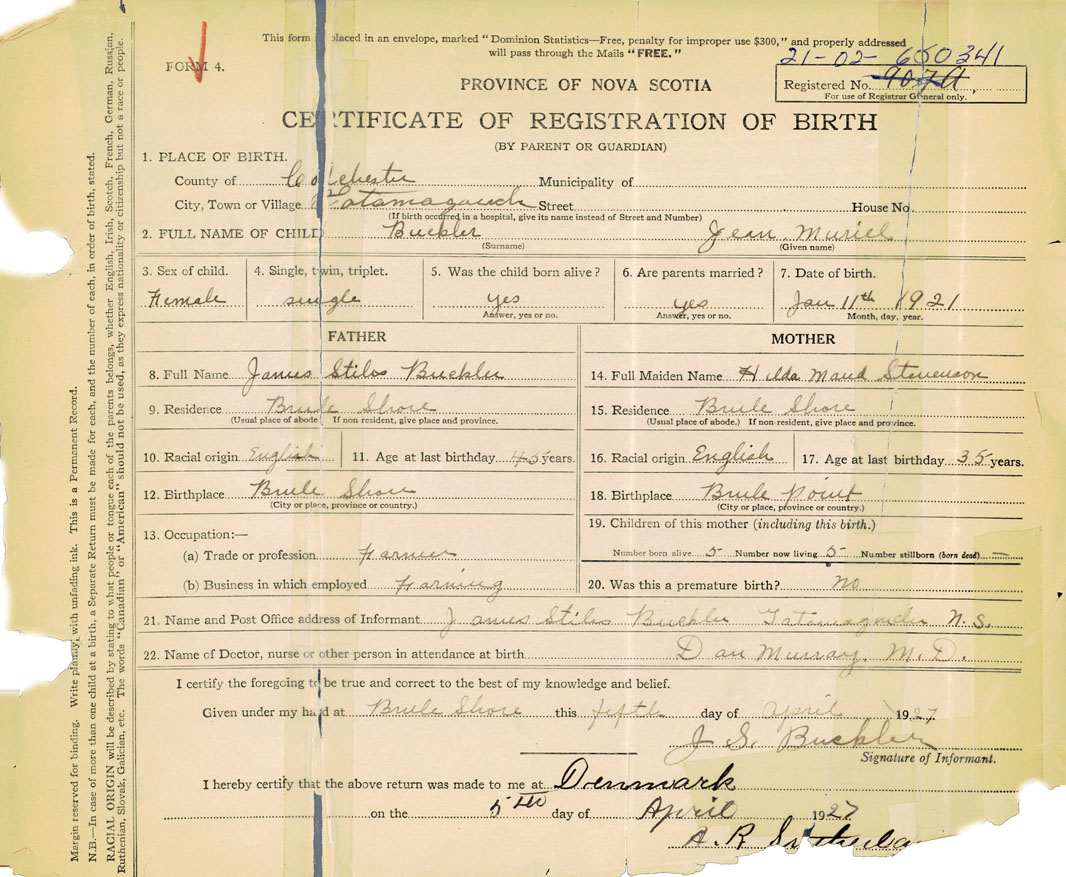 This form placed in an envelope, marked "Dominion Statistics—Free, penalty for improper use $300," and properly addressed
will pass through the Mails "FREE."
21-02- 600341
FORM 4.
PROVINCE OF NOVA SCOTIA
Registered No.
For use of Registrar General only.
CERTIFICATE OF REGISTRATION OF BIRTH
(BY PARENT OR GUARDIAN)
1. PLACE OF BIRTH.
County of Colchester Municipality of
City, Town or Village Tatamagouch Street House No.
(If birth occurred in a hospital, give its name instead of Street and Number)
2. FULL NAME OF CHILD Buckler Jean Muriel
(Surname) (Given name)
3. Sex of child. 4. Single, twin, triplet. 5. Was the child born alive? 6. Are parents married? 7. Date of birth.
Female single yes yes Jan 11th 1921
Answer, yes or no. Answer, yes or no. Month, day, year.
FATHER MOTHER
8. Full Name James Stiles Buckler 14. Full Maiden Name Hilda Maud Stevenson
9. Residence Brule Shore 15. Residence Brule Shore
(Usual place of abode. If non-resident, give place and province. (Usual place of abode.) If non-resident, give place and province.
10. Racial origin English 11. Age at last birthday 45 years. 16. Racial origin English 17. Age at last birthday 35 years.
12. Birthplace Brule Shore 18. Birthplace Brule Point
(City or place, province or country.) (City or place, province or country.)
19. Children of this mother (including this birth.)
13. Occupation:—
(a) Trade or profession Farmer Number born alive 5 Number now living 5 Number stillborn (born dead) —
(b) Business in which employed Farming 20. Was this a premature birth? no
21. Name and Post Office address of Informant James Stiles Buckler N.S.
22. Name of Doctor, nurse or other person in attendance at birth Dan Murray, M.D.
I certify the foregoing to be true and correct to the best of my knowledge and belief.
Given under my hand at Brule Shore this fifth day of April 1927.
J S. Buckler
Signature of Informant.
I hereby certify that the above return was made to me at Denmark
on the 5th day of April 1927
A. R
Margin reserved for binding. Write plainly with unfading ink. This is a Permanent Record.
N.B.—In case of more than one child at a birth, a Separate Return must be made for each, and the number of each, in order of birth, stated.
RACIAL ORIGIN will be described by stating to what people or tongue each of the parents belongs, whether English, Irish, Scotch, French, German, Russian,
Ruthenian, Slovak, Galician, etc. The words "Canadian" or "American" should not be used, as they express nationality or citizenship but not a race or people.